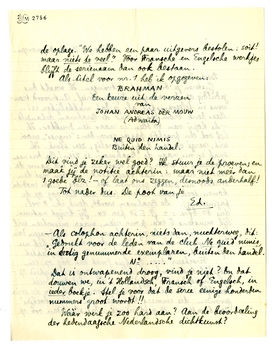 DM 2756
de oplage. "We hebben een paar uitgevers bestolen, soit!
maar niets te veel!" Voor Fransche en Engelsche werkjes
blijft de serienaam dan ook bestaan.
Als titel voor nr. 1 heb ik opgegeven
BRAHMAN
Een keuze uit de verzen
van
JOHAN ANDREAS DER MOUW
(Adwaita)
NE QUID NIMIS
Buiten den handel.
Dit vind je zeker wel goed? Ik stuur je de proeven; en
maak jij de notitie achterin – maar niet meer dan
1 goeie blz! – of laat ons zeggen, desnoods anderhalf!
Tot nader dus. De poot van je
E.
– Als colophon achterin, niets dan, nuchterweg, dit:
Gedrukt voor de leden van de club Ne quid nimis,
in dertig genummerde exemplaren, buiten den handel.
No ......
Dat is ontwapenend droog, vind je niet? En dat
douwen we, in 't Hollandsch, Fransch of Engelsch, in
ieder boekje. Stel je voor dat de serie eenige honderden
nummers groot wordt!!
Waar werk je zoo hard aan? Aan de
der hedendaagsche Nederlandsche dichtkunst?